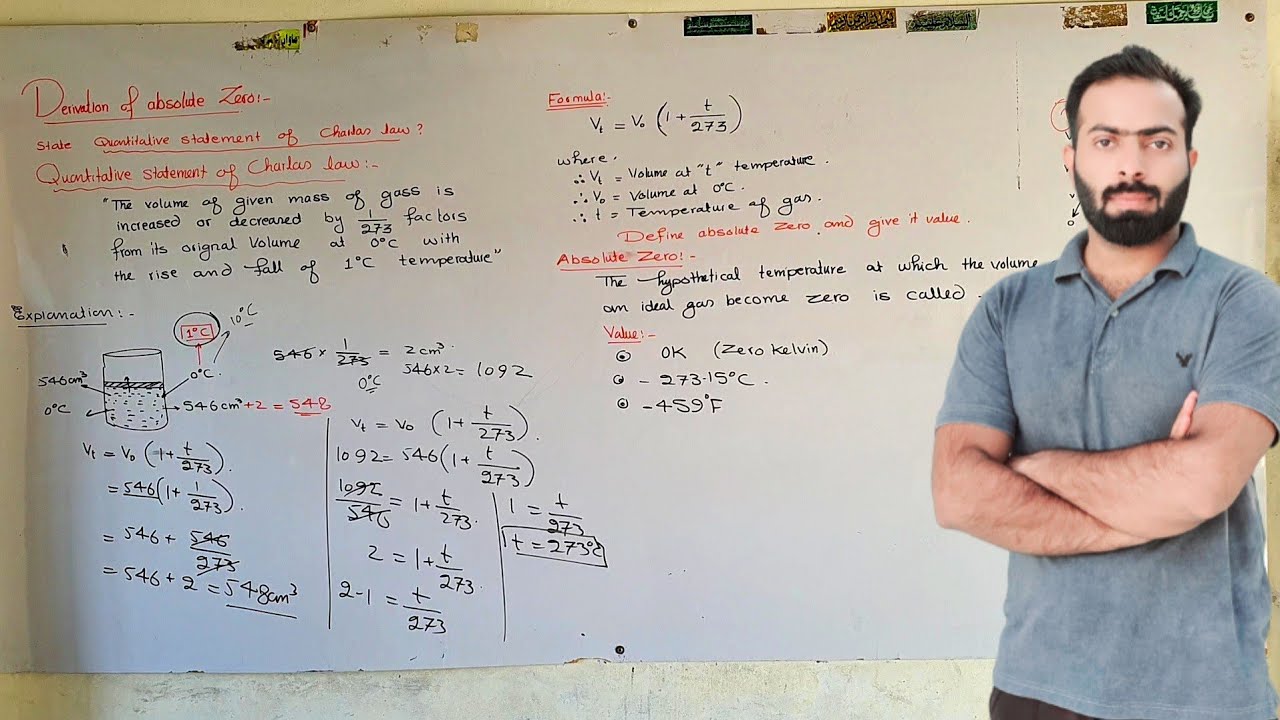 Derivation of absolute Zero:-
State Quantitative statement of Charlas law?
Quantitative statement of Charlas law:-
"The volume of given mass of gass is
increased or decreased by 1/273 factors
from its orignal Volume at 0°C with
the rise and fall of 1°C temperature"
Explanation:-
1°C
10°C
546cm³
0°C
0°C
546cm³+2 = 548
546 × 1/273 = 2cm³
0°C
546×2 = 1092
Vt = V₀ (1+t/273).
= 546(1+1/273).
= 546 + 546/273
= 546 + 2 = 548cm³
Vt = V₀ (1+t/273).
1092 = 546(1+t/273)
1092/546 = 1+t/273.
2 = 1+t/273.
2-1 = t/273
1 = t/273
t = 273°C
Formula:-
Vt = V₀ (1+t/273)
where.
∴ Vt = Volume at "t" temperature.
∴ V₀ = Volume at 0°C.
∴ t = Temperature of gas.
Define absolute Zero and give it value.
Absolute Zero:-
The hypothetical temperature at which the volume
an ideal gas become zero is called.
Value:-
0K (Zero kelvin)
-273.15°C.
-459°F